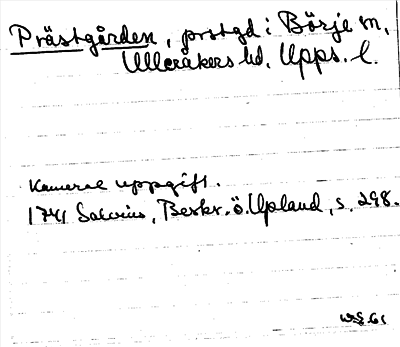 Prästgården, prstgd i Börje sn,
Ulleråkers hd, Upps. l.
Kameral uppgift.
1741 Salvius, Beskr. ö. Upland, s. 298.